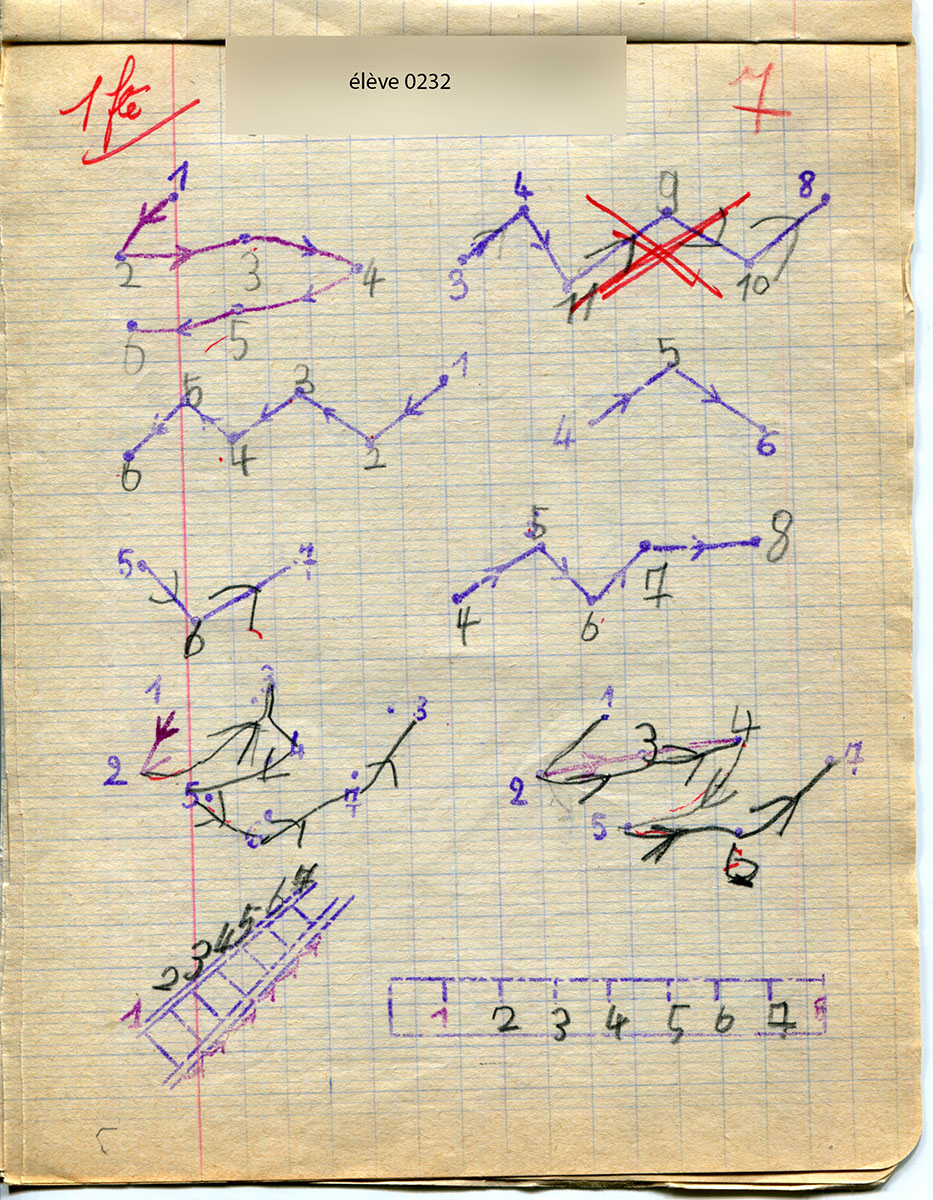 1 fte
élève 0232
7
1
2 3 4
6 5
4 9 8
3 11 10
5 3 1
6 4 2
5
4 6
5 7
6
5 8
4 6 7
1 3 3
2 4
5 7
6
1 3 4
2 7
5 6
1 2 3 4 5 6 7
1 2 3 4 5 6 7 8